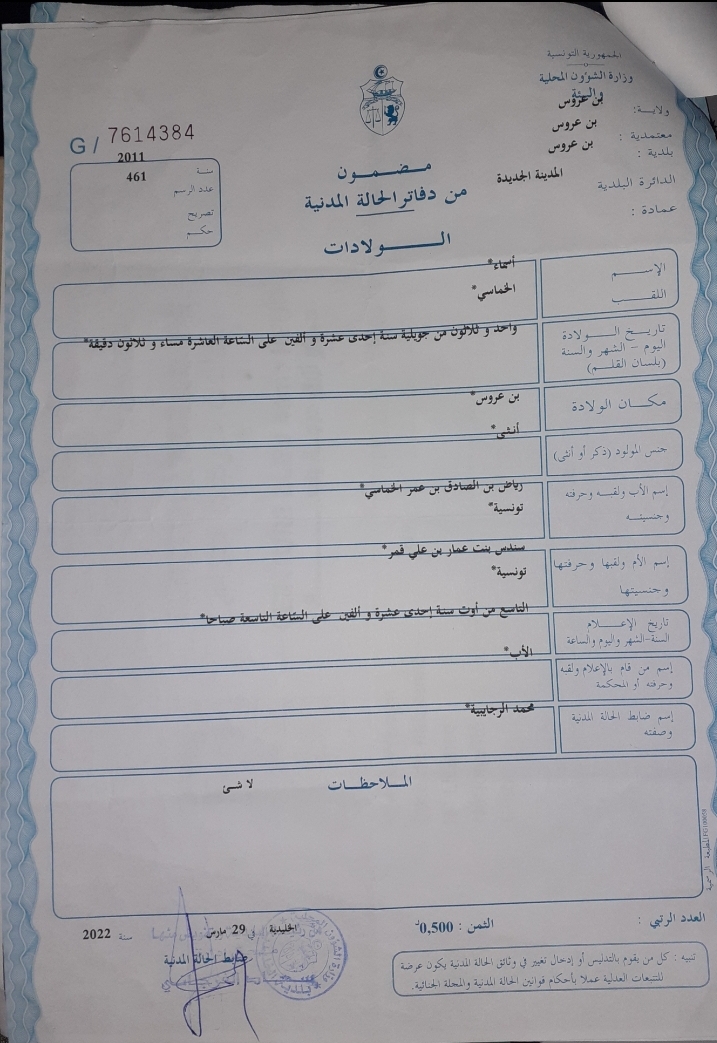 الجمهورية التونسية
وزارة الشؤون المحلية
والبيئة
ولاية: بن عروس
معتمدية : بن عروس
بلدية : بن عروس
الدائرة البلدية المدينة الجديدة
عمادة :
G / 7614384
سنة 2011
عدد الرسم 461
تصريح
حكم
مضمون
من دفاتر الحالة المدنية
الولادات
الإسم أسماء*
اللقب الخماسي*
تاريخ الولادة
اليوم - الشهر والسنة
(بلسان القلم)
واحد و ثلاثون من جويلية سنة إحدى عشرة و ألفين على الساعة العاشرة مساء و ثلاثون دقيقة*
مكان الولادة بن عروس*
جنس المولود (ذكر أو أنثى) أنثى*
إسم الأب ولقبه وحرفته
وجنسيته
رياض بن الصادق بن عمر الخماسي*
تونسية*
إسم الأم ولقبها وحرفتها
وجنسيتها
سندس بنت عمار بن علي قمر*
تونسية*
تاريخ الإعلام
السنة-الشهر واليوم والساعة
التاسع من أوت سنة إحدى عشرة و ألفين على الساعة التاسعة صباحا*
إسم من قام بالإعلام ولقبه
وحرفته أو المحكمة
الأب*
إسم ضابط الحالة المدنية
وصفته
محمد الرجايبية*
الملاحظات لا شئ
المطبعة الرسمية
العدد الرتبي : الثمن : 0,500د
الخليدية في 29 مارس سنة 2022
ضابط الحالة المدنية
تنبيه : كل من يقوم بالتدليس أو إدخال تغيير في وثائق الحالة المدنية يكون عرضة
للتتبعات العدلية عملا بأحكام قوانين الحالة المدنية والمجلة الجنائية.